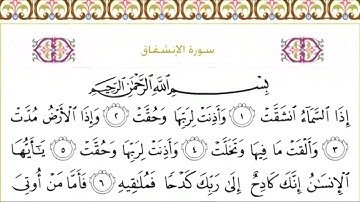 سورة الإنشقاق
بِسْمِ ٱللَّهِ ٱلرَّحْمَٰنِ ٱلرَّحِيمِ
إِذَا ٱلسَّمَآءُ ٱنشَقَّتْ ١ وَأَذِنَتْ لِرَبِّهَا وَحُقَّتْ ٢ وَإِذَا ٱلْأَرْضُ مُدَّتْ
٣ وَأَلْقَتْ مَا فِيهَا وَتَخَلَّتْ ٤ وَأَذِنَتْ لِرَبِّهَا وَحُقَّتْ ٥ يَٰٓأَيُّهَا
ٱلْإِنسَٰنُ إِنَّكَ كَادِحٌ إِلَىٰ رَبِّكَ كَدْحًا فَمُلَٰقِيهِ ٦ فَأَمَّا مَنْ أُوتِىَ